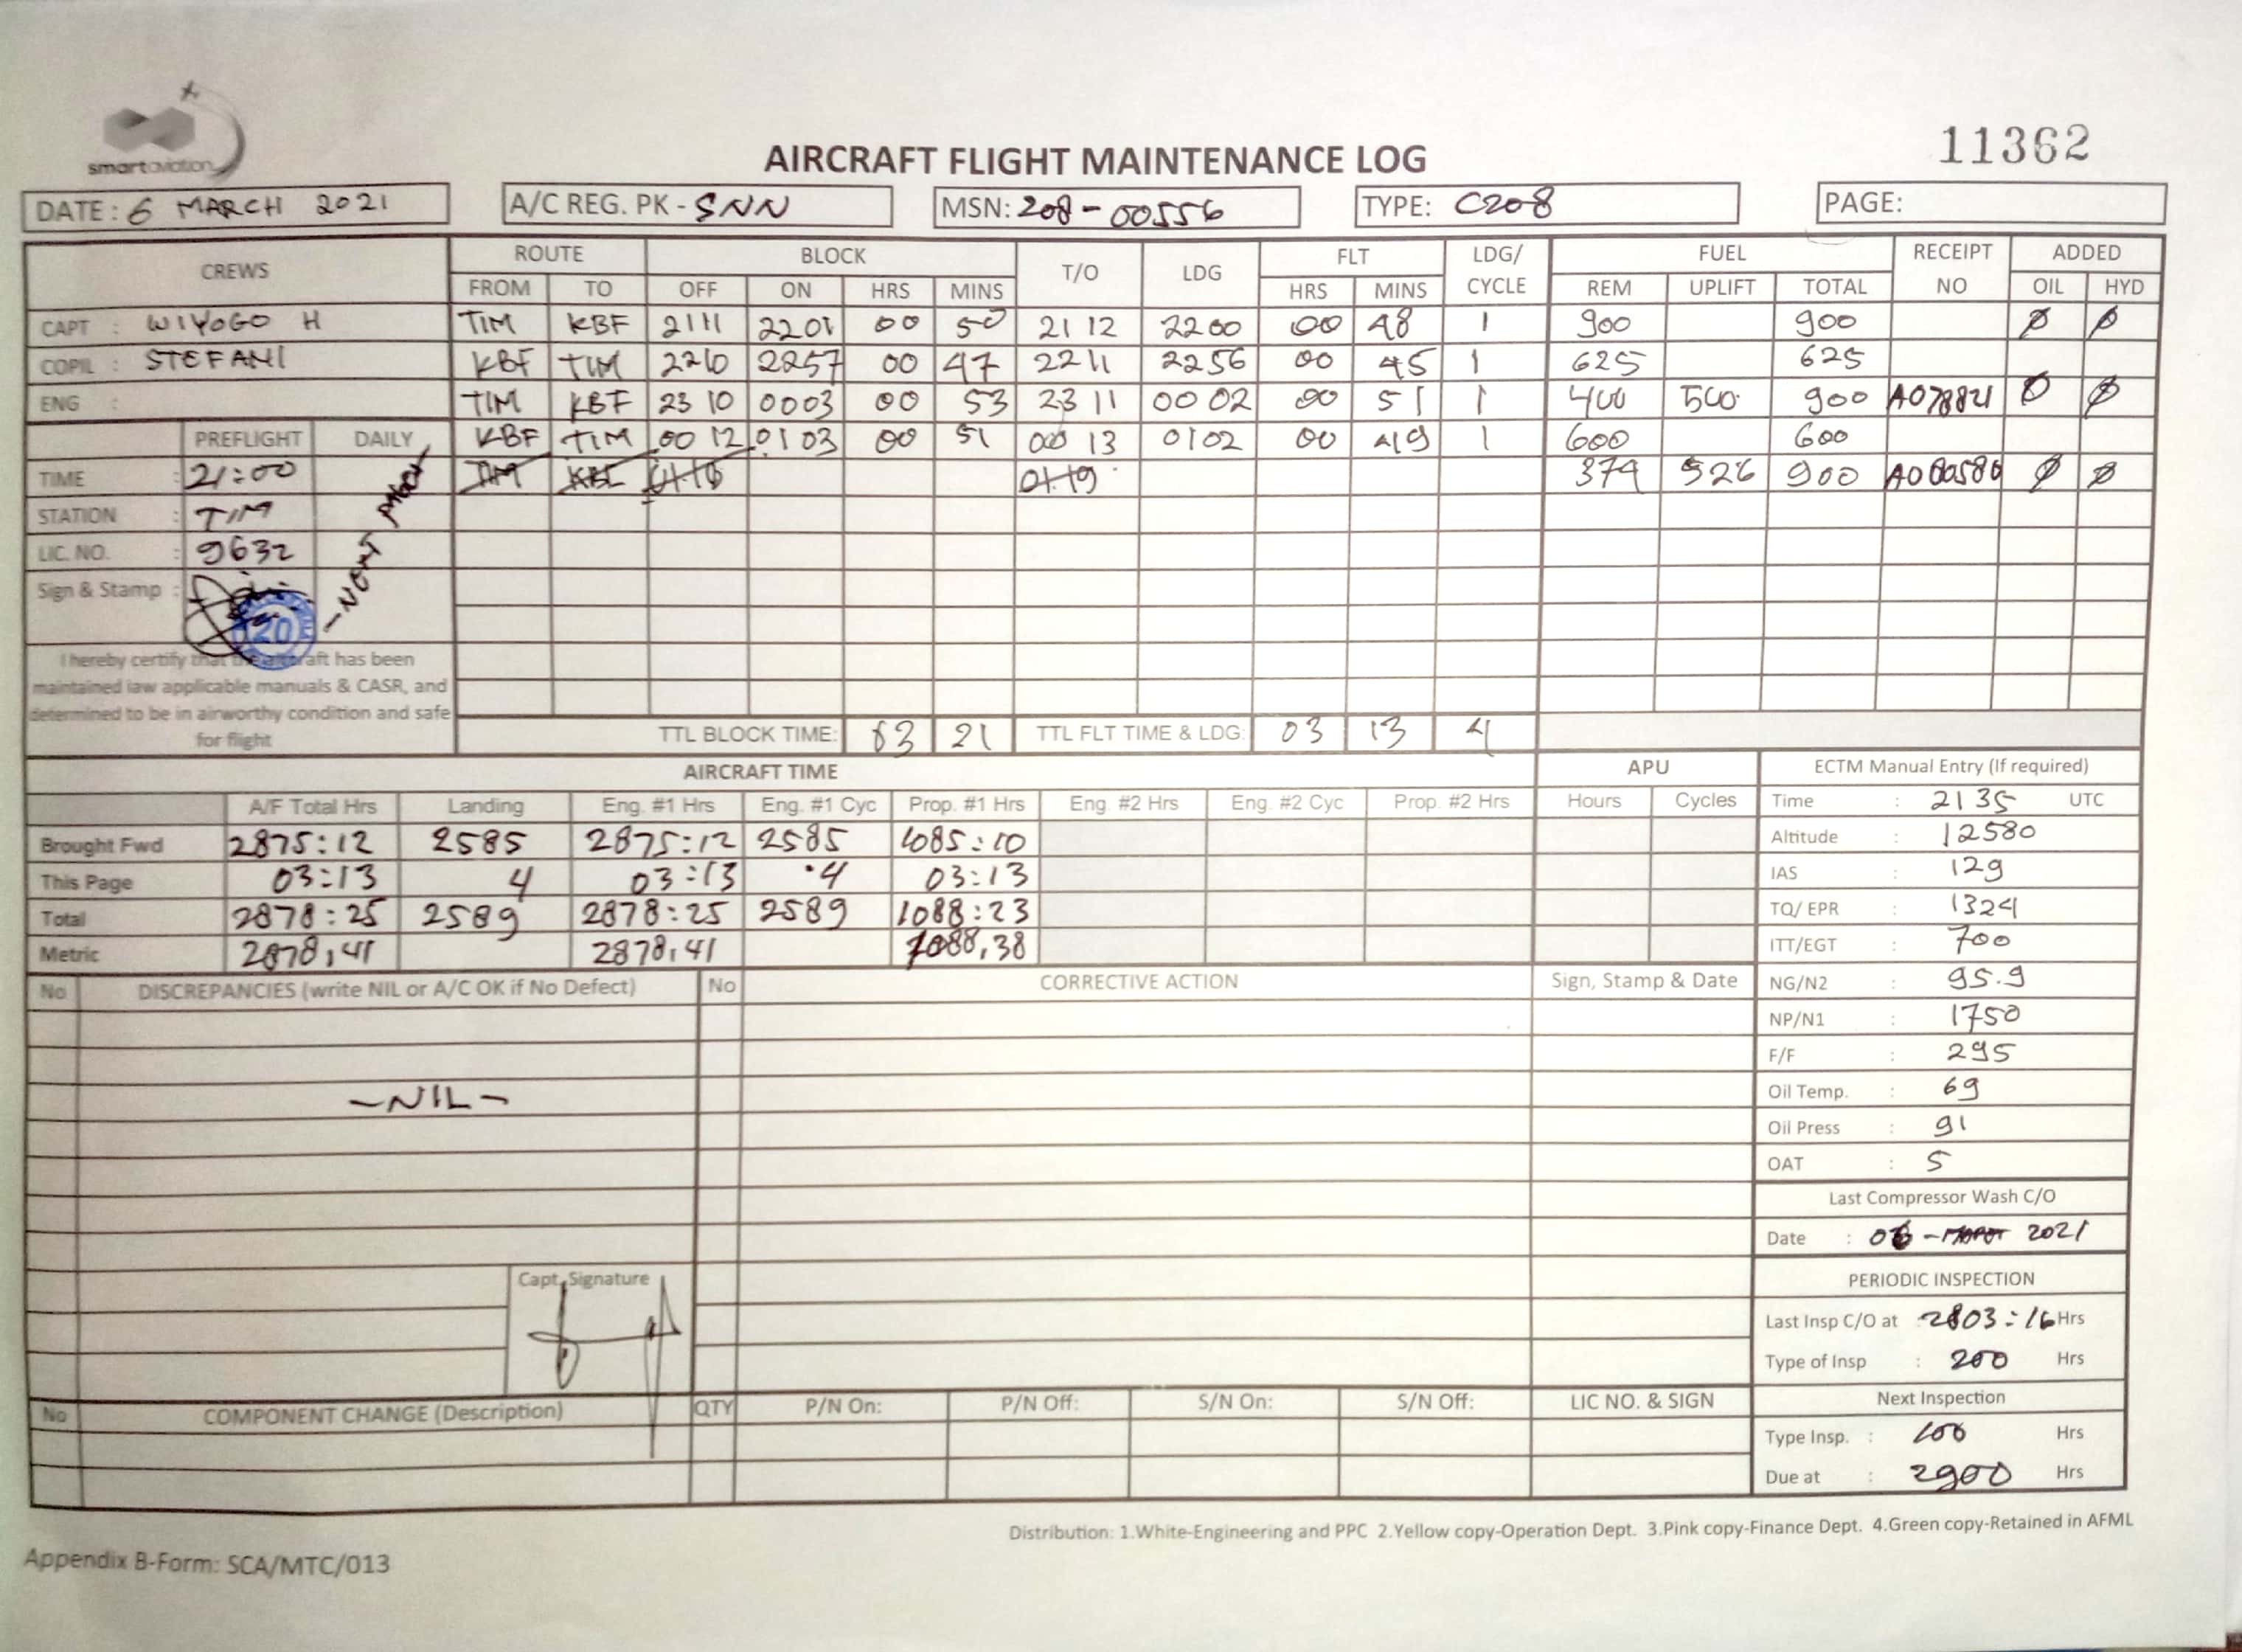 smartaviation
11362
AIRCRAFT FLIGHT MAINTENANCE LOG
DATE: 6 MARCH 2021 A/C REG. PK - SNN MSN: 208-00556 TYPE: C208 PAGE:
CREWS ROUTE BLOCK T/O LDG FLT LDG/ CYCLE FUEL RECEIPT NO ADDED
FROM TO OFF ON HRS MINS HRS MINS REM UPLIFT TOTAL OIL HYD
CAPT : WIYOGO H TIM KBF 2111 2201 00 50 2112 2200 00 48 1 900 900 Ø Ø
COPIL : STEFANI KBF TIM 2210 2257 00 47 2211 2256 00 45 1 625 625
ENG : TIM KBF 2310 0003 00 53 2311 0002 00 51 1 400 500 900 A078821 Ø Ø
PREFLIGHT DAILY KBF TIM 0012 0103 00 51 0013 0102 00 49 1 600 600
TIME : 21:00 TIM 01 19 374 526 900 Ø Ø
STATION : TIM
LIC. NO. : 9632
Sign & Stamp :
20
I hereby certify that the aircraft has been
maintained iaw applicable manuals & CASR, and
determined to be in airworthy condition and safe
for flight
TTL BLOCK TIME: 03 21 TTL FLT TIME & LDG: 03 13 4
AIRCRAFT TIME APU ECTM Manual Entry (If required)
A/F Total Hrs Landing Eng. #1 Hrs Eng. #1 Cyc Prop. #1 Hrs Eng. #2 Hrs Eng. #2 Cyc Prop. #2 Hrs Hours Cycles Time : 2135 UTC
Brought Fwd 2875:12 2585 2875:12 2585 1085:10 Altitude : 12580
This Page 03:13 4 03:13 4 03:13 IAS : 129
Total 2878:25 2589 2878:25 2589 1088:23 TQ/ EPR : 1324
Metric 2878,41 2878,41 1088,38 ITT/EGT : 700
No DISCREPANCIES (write NIL or A/C OK if No Defect) No CORRECTIVE ACTION Sign, Stamp & Date NG/N2 : 95.9
NP/N1 : 1750
F/F : 295
-NIL- Oil Temp. : 69
Oil Press : 91
OAT : 5
Last Compressor Wash C/O
Date : 2021
Capt. Signature PERIODIC INSPECTION
Last Insp C/O at : 2803:16 Hrs
Type of Insp : 200 Hrs
No COMPONENT CHANGE (Description) QTY P/N On: P/N Off: S/N On: S/N Off: LIC NO. & SIGN Next Inspection
Type Insp. : 100 Hrs
Due at : 2900 Hrs
Distribution: 1.White-Engineering and PPC 2.Yellow copy-Operation Dept. 3.Pink copy-Finance Dept. 4.Green copy-Retained in AFML
Appendix B-Form: SCA/MTC/013